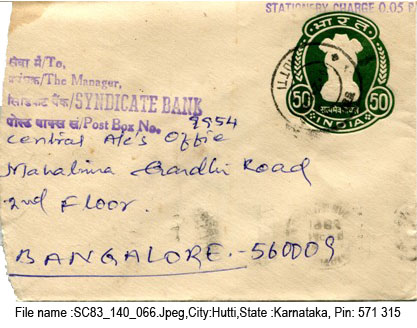 STATIONERY CHARGE 0.05
भारत
HUTTI
50 50
सत्यमेव जयते
INDIA
सेवा में/To,
प्रबंधक/The Manager,
सिंडिकेट बैंक/SYNDICATE BANK
पोस्ट बाक्स सं/Post Box No. 9954
Central A/c's Office
Mahatma Gandhi Road
2nd Floor.
BANGALORE.-560009
File name :SC83_140_066.Jpeg,City:Hutti,State :Karnataka, Pin: 571 315